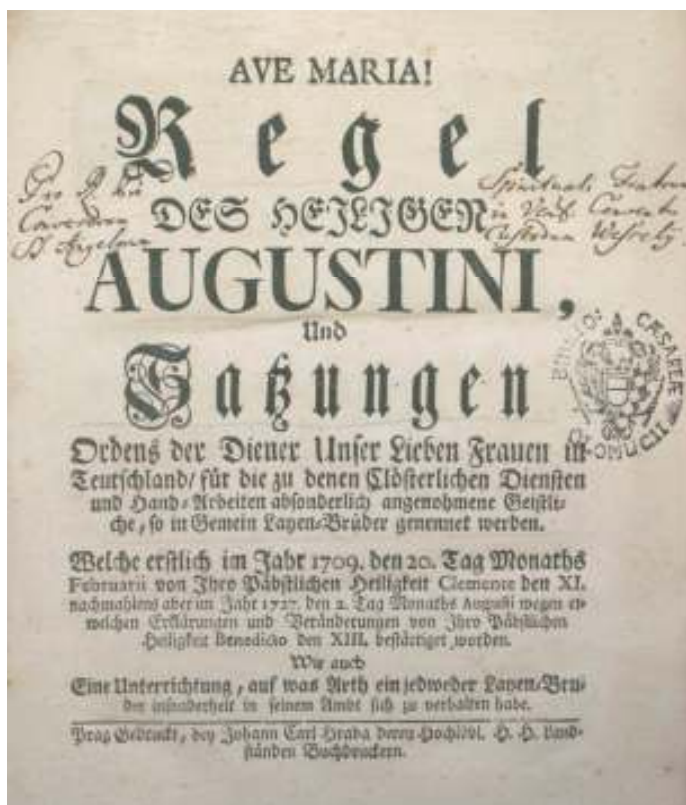 AVE MARIA!
Regel
DES HEILIGEN
AUGUSTINI,
Und
Satzungen
Ordens der Diener Unser Lieben Frauen in
Teutschland/ für die zu denen Clösterlichen Diensten
und Hand-Arbeiten absonderlich angenohmene Geistli-
che, so in Gemein Layen-Brüder genennet werden.
Welche erstlich im Jahr 1709. den 20. Tag Monaths
Februarii von Ihro Päbstlichen Heiligkeit Clemente den XI.
nachmahlens aber im Jahr 1727. den 2. Tag Monaths Augusti wegen et-
welchen Erklärungen und Veränderungen von Ihro Päbstlichen
Heiligkeit Benedicto den XIII. bestättiget worden.
Wie auch
Eine Unterrichtung, auf was Arth ein jedweder Layen-Bru-
der insonderheit in seinem Ambt sich zu verhalten habe.
Prag Gedruckt, bey Johann Carl Hraba deren Hochlöbl. H. H. Land-
ständen Buchdruckern.
CÆSAREÆ
OLOMUCII